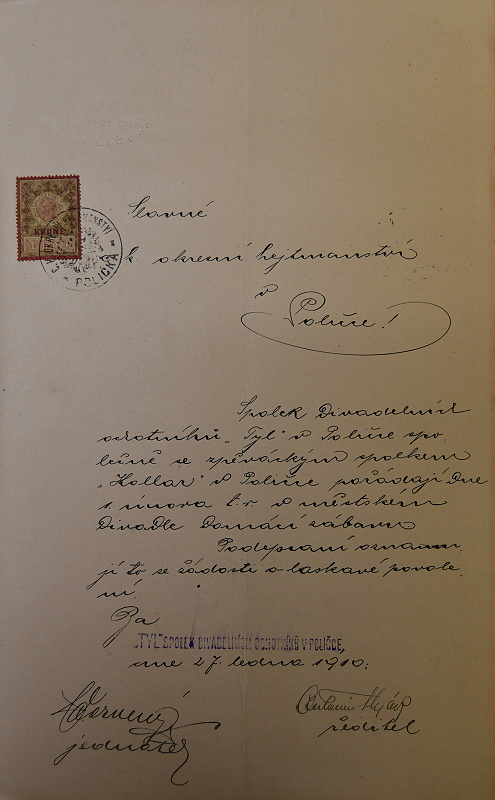 KRONE
POLIČKA
Slavné
k. okresní hejtmanství
v
Poličce!
Spolek Divadelních
ochotníků „Tyl“ v Poličce spo-
lečně se zpěváckým spolkem
„Kollar“ v Poličce pořádají dne
1. února t. r. v městském
Divadle Domácí zábavu.
Podepsaní oznamu-
jí to se žádostí o laskavé povole-
ní.
Za
„TYL“ SPOLEK DIVADELNÍCH OCHOTNÍKŮ V POLIČCE,
dne 27. ledna 1910.
jednatel
Antonín
ředitel